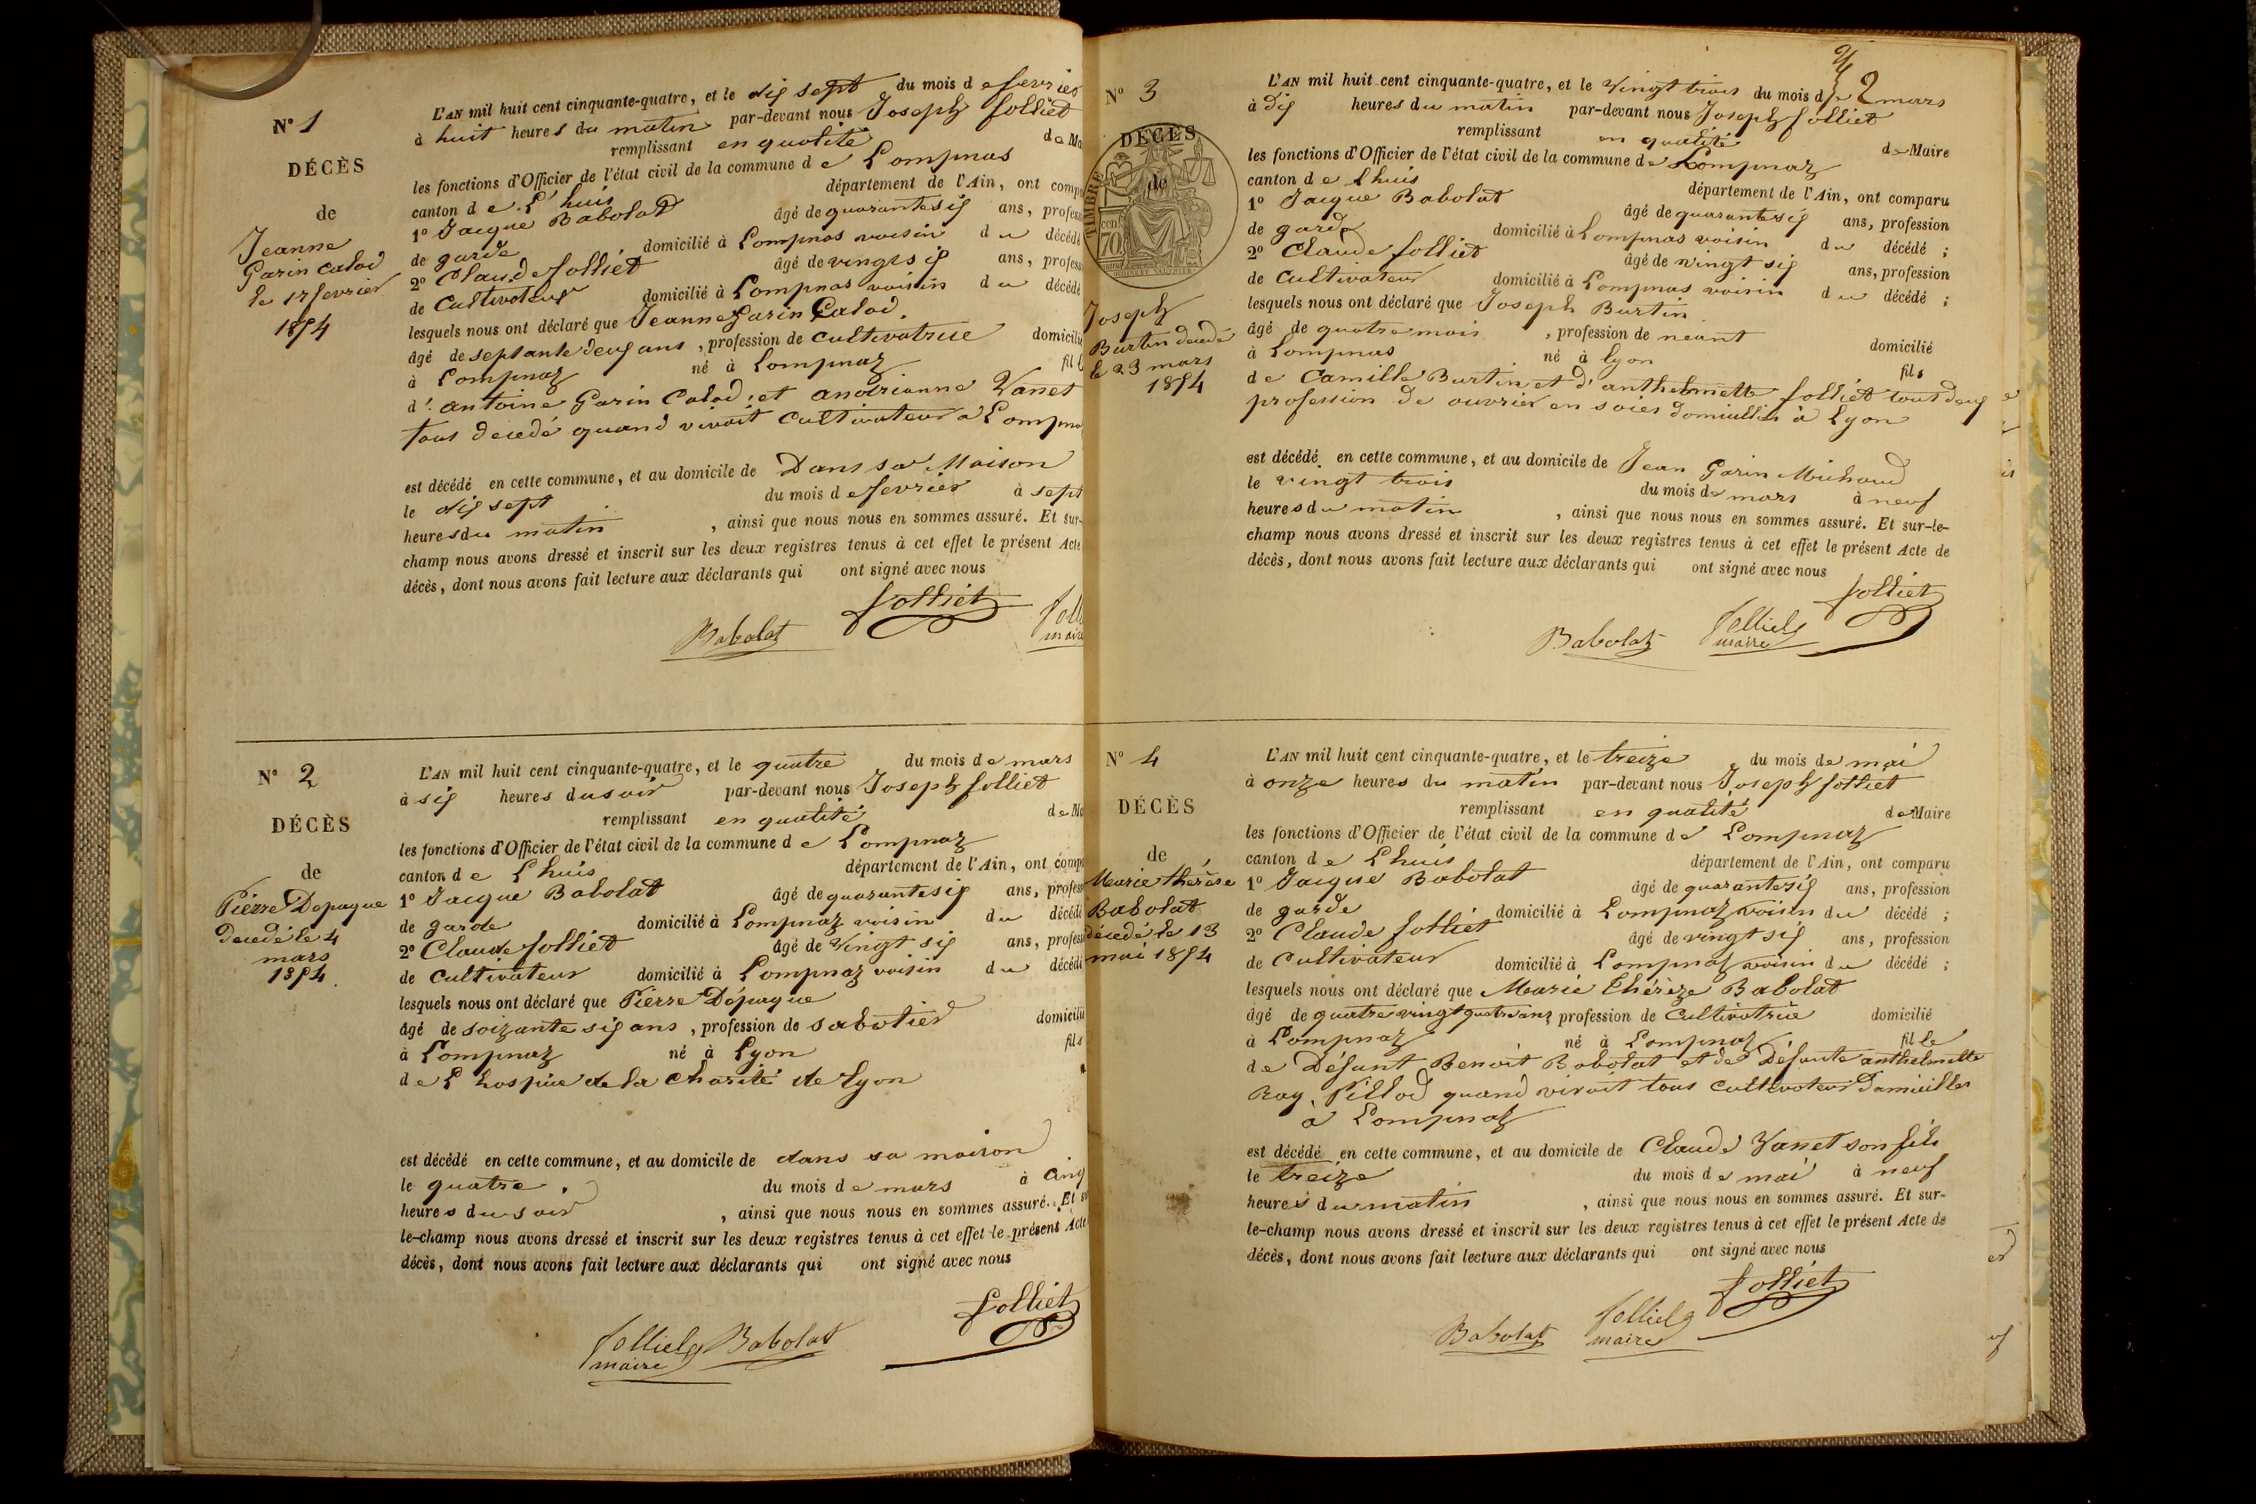 N° 1
DÉCÈS
de
Jeanne
Garin Calod
le 17 fevrier
1854
L'AN mil huit cent cinquante-quatre, et le dix sept du mois de fevrier
à huit heures du matin par-devant nous Joseph folliet
remplissant en qualité de Ma
les fonctions d'Officier de l'état civil de la commune de Lompnas
canton de L'huis département de l'Ain, ont compa
1° Jacque Babolat âgé de quarante six ans, profess
de garde domicilié à Lompnas voisin du décédé
2° Claude folliet âgé de vingt six ans, profess
de Cultivateur domicilié à Lompnas voisin du décédé
lesquels nous ont déclaré que Jeanne Garin Calod.
âgé de septante deux ans, profession de cultivatrice domicilié
à Lompnaz né à Lompnaz fille
d'antoine Garin Calod et andrianne Vanet
tous decedé quand vivoit Cultivateur a Lompna
est décédé en cette commune, et au domicile de Dans sa Maison
le dix sept du mois de fevrier à sept
heures du matin, ainsi que nous nous en sommes assuré. Et sur-
champ nous avons dressé et inscrit sur les deux registres tenus à cet effet le présent Acte
décès, dont nous avons fait lecture aux déclarants qui ont signé avec nous
Babolat folliet foll
maire
N° 2
DÉCÈS
de
Pierre Dépagne
Decedé le 4
mars
1854.
L'AN mil huit cent cinquante-quatre, et le quatre du mois de mars
à six heures du soir par-devant nous Joseph folliet
remplissant en qualité de Ma
les fonctions d'Officier de l'état civil de la commune de Lompnaz
canton de Lhuis département de l'Ain, ont compa
1° Jacque Babolat âgé de quarante six ans, profess
de garde domicilié à Lompnaz voisin du décédé
2° Claude folliet âgé de Vingt six ans, profess
de Cultivateur domicilié à Lompnaz voisin du décédé
lesquels nous ont déclaré que Pierre Dépagne
âgé de soixante six ans, profession de sabotier domicilié
à Lompnaz né à Lyon fils
de L hospice de la Charité de Lyon
est décédé en cette commune, et au domicile de dans sa maison
le quatre. du mois de mars à cinq
heures du soir, ainsi que nous nous en sommes assuré. Et su
le-champ nous avons dressé et inscrit sur les deux registres tenus à cet effet le présent Acte
décès, dont nous avons fait lecture aux déclarants qui ont signé avec nous
folliet Babolat folliet
maire
2
N° 3
DÉCÈS
de
TIMBRE
cent
70
Joseph
Burtin decedé
le 23 mars
1854
L'AN mil huit cent cinquante-quatre, et le Vingt trois du mois de mars
à dix heures du matin par-devant nous Joseph folliet
remplissant en qualité de Maire
les fonctions d'Officier de l'état civil de la commune de Lompnaz
canton de Lhuis département de l'Ain, ont comparu
1° Jacque Babolat âgé de quarante six ans, profession
de garde domicilié à Lompnas voisin du décédé ;
2° Claude folliet âgé de vingt six ans, profession
de Cultivateur domicilié à Lompnas voisin du décédé ;
lesquels nous ont déclaré que Joseph Burtin
âgé de quatre mois, profession de neant domicilié
à Lompnas né à lyon fils
de Camille Burtin et d'anthelmette folliet tout deux
profession de ouvrier en soies domicilies à Lyon
est décédé en cette commune, et au domicile de Jean Garin Michaud
le vingt trois du mois de mars à neuf
heures du matin, ainsi que nous nous en sommes assuré. Et sur-le-
champ nous avons dressé et inscrit sur les deux registres tenus à cet effet le présent Acte de
décès, dont nous avons fait lecture aux déclarants qui ont signé avec nous
Babolat folliet folliet
maire
N° 4
DÉCÈS
de
Marie thérèse
Babolat
décedé le 13
mai 1854
L'AN mil huit cent cinquante-quatre, et le treize du mois de mai
à onze heures du matin par-devant nous Joseph folliet
remplissant en qualité de Maire
les fonctions d'Officier de l'état civil de la commune de Lompnaz
canton de Lhuis département de l'Ain, ont comparu
1° Jacque Babolat âgé de quarante six ans, profession
de garde domicilié à Lompnaz voisin du décédé ;
2° Claude folliet âgé de vingt six ans, profession
de Cultivateur domicilié à Lompnaz voisin du décédé ;
lesquels nous ont déclaré que Marie thérèze Babolat
âgé de quatre vingt quatre ans profession de Cultivatrice domicilié
à Lompnaz né à Lompnaz fille
de Défunt Benoit Babolat et de Défunte anthelmette
Ray Pillod quand vivoit tous cultivateur Domicilies
à Lompnaz
est décédé en cette commune, et au domicile de Claude Vanet son fils
le treize du mois de mai à neuf
heures du matin, ainsi que nous nous en sommes assuré. Et sur-
le-champ nous avons dressé et inscrit sur les deux registres tenus à cet effet le présent Acte de
décès, dont nous avons fait lecture aux déclarants qui ont signé avec nous
Babolat folliet folliet
maire